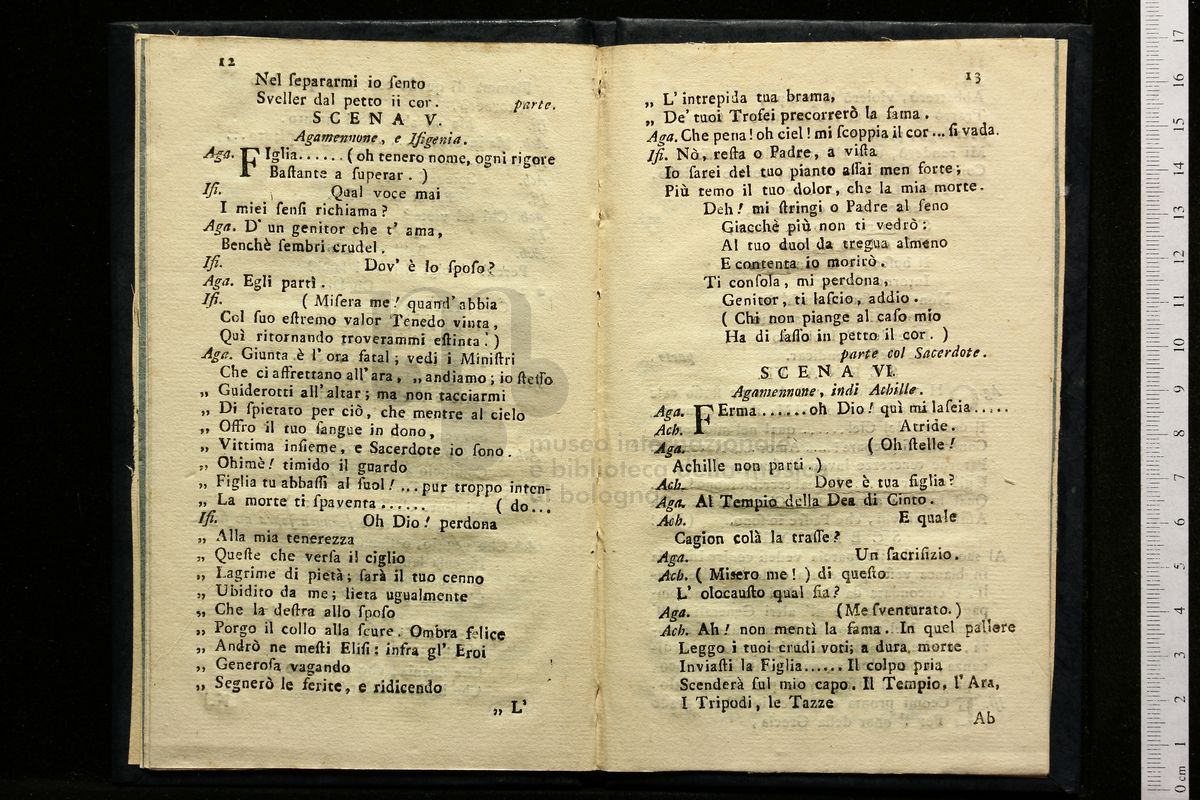 12
Nel ſepararmi io ſento
Sveller dal petto ii cor. parte.
SCENA V.
Agamennone, e Iſigenia.
Aga. FIglia...... ( oh tenero nome, ogni rigore
Baſtante a ſuperar. )
Ifi. Qual voce mai
I miei ſenſi richiama?
Aga. D' un genitor che t' ama,
Benchè ſembri crudel.
Ifi. Dov' è lo ſpoſo?
Aga. Egli partì.
Ifi. ( Miſera me! quand' abbia
Col ſuo eſtremo valor Tenedo vinta,
Quì ritornando troverammi eſtinta. )
Aga. Giunta è l' ora fatal; vedi i Miniſtri
Che ci affrettano all' ara, „ andiamo; io ſteſſo
„ Guiderotti all' altar; ma non tacciarmi
„ Di ſpietato per ciò, che mentre al cielo
„ Offro il tuo ſangue in dono,
„ Vittima inſieme, e Sacerdote io ſono.
„ Ohimè! timido il guardo
„ Figlia tu abbaſſi al ſuol! ... pur troppo inten-
„ La morte ti ſpaventa...... ( do...
Ifi. Oh Dio! perdona
„ Alla mia tenerezza
„ Queſte che verſa il ciglio
„ Lagrime di pietà; ſarà il tuo cenno
„ Ubidito da me; lieta ugualmente
„ Che la deſtra allo ſpoſo
„ Porgo il collo alla ſcure. Ombra felice
„ Andrò ne meſti Eliſi: infra gl' Eroi
„ Generoſa vagando
„ Segnerò le ferite, e ridicendo
„ L'
13
„ L' intrepida tua brama,
„ De' tuoi Trofei precorrerò la fama.
Aga. Che pena! oh ciel! mi ſcoppia il cor... ſi vada.
Ifi. Nò, reſta o Padre, a viſta
Io ſarei del tuo pianto aſſai men forte;
Più temo il tuo dolor, che la mia morte.
Deh! mi ſtringi o Padre al ſeno
Giacchè più non ti vedrò:
Al tuo duol da tregua almeno
E contenta io morirò.
Ti conſola, mi perdona,
Genitor, ti laſcio, addio.
( Chi non piange al caſo mio
Ha di ſaſſo in petto il cor. )
parte col Sacerdote.
SCENA VI.
Agamennone, indi Achille.
Aga. FErma ...... oh Dio! quì mi laſeia.....
Ach. Atride.
Aga. ( Oh ſtelle!
Achille non partì. )
Ach. Dove è tua figlia?
Aga. Al Tempio della Dea di Cinto.
Ach. E quale
Cagion colà la traſſe?
Aga. Un ſacrifizio.
Ach. ( Misero me! ) di queſto
L' olocauſto qual ſia?
Aga. ( Me ſventurato. )
Ach. Ah! non mentì la fama. In quel pallore
Leggo i tuoi crudi voti; a dura morte
Inviaſti la Figlia...... Il colpo pria
Scenderà ſul mio capo. Il Tempio, l' Ara,
I Tripodi, le Tazze
Ab
museo internazionale
e biblioteca
di bologna
0 cm 1 2 3 4 5 6 7 8 9 10 11 12 13 14 15 16 17